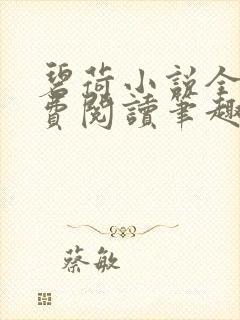 碧荷小說全
費閱讀筆趣
蔡敏